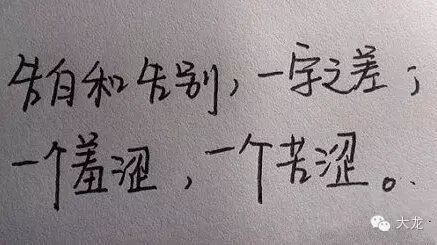 告白和告别，一字之差；
一个羞涩，一个苦涩。
大龙·